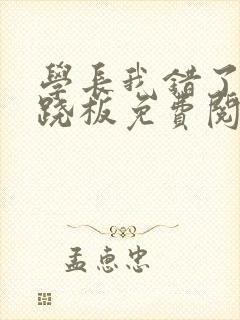 學長我错了
跷板免費閱
孟惠忠